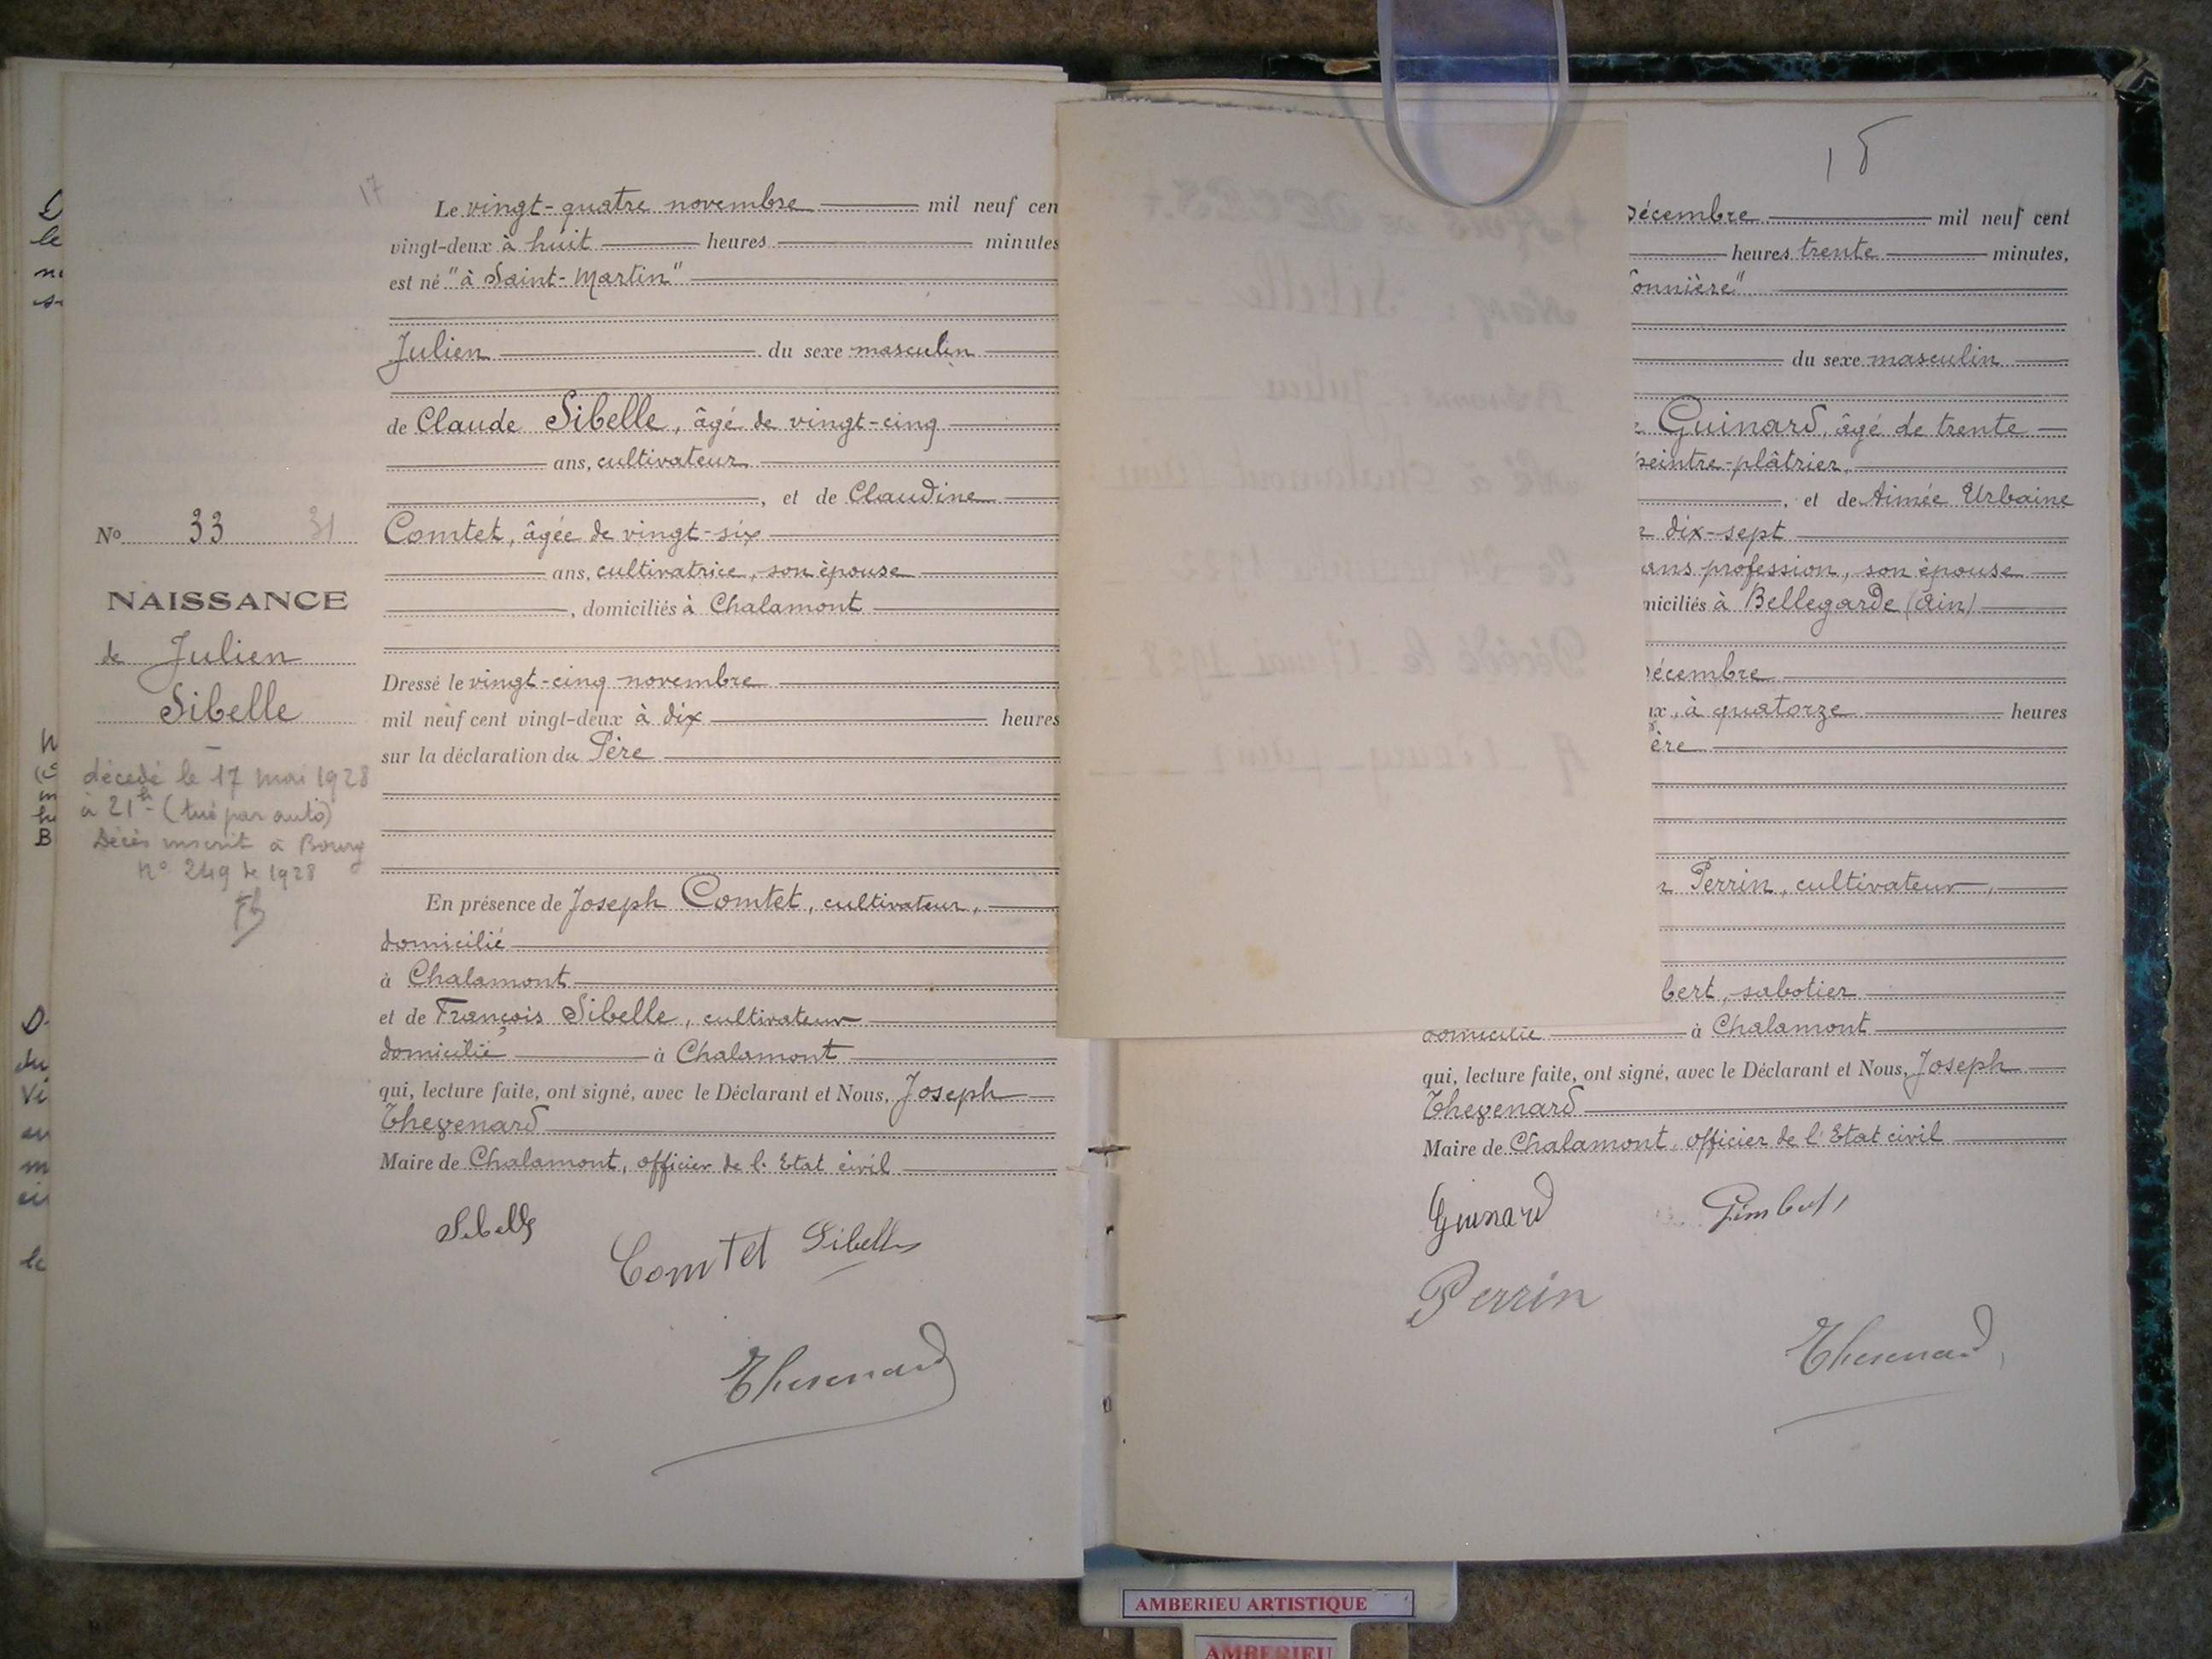 17
Le vingt-quatre novembre mil neuf cen
vingt-deux à huit heures minutes
est né "à Saint-Martin"
Julien du sexe masculin
de Claude Sibelle, âgé de vingt-cinq
ans, cultivateur
, et de Claudine
Comtet, âgée de vingt-six
ans, cultivatrice, son épouse
, domiciliés à Chalamont
Dressé le vingt-cinq novembre
mil neuf cent vingt-deux à dix heures
sur la déclaration du Père
En présence de Joseph Comtet, cultivateur,
domicilié
à Chalamont
et de François Sibelle, cultivateur
domicilié à Chalamont
qui, lecture faite, ont signé, avec le Déclarant et Nous, Joseph
Thevenard
Maire de Chalamont, officier de l'Etat civil
Sibelle
Comtet Sibelle
Thevenard
No 33 31
NAISSANCE
de Julien
Sibelle
décédé le 17 mai 1928
à 21h (tué par auto)
Décès inscrit à Bourg
n° 249 de 1928
Sibelle
Prénoms : Julien
Né à Chalamont
Décédé le 17 mai 1928
18
Décembre mil neuf cent
heures trente minutes,
onnière"
du sexe masculin
Guinard, âgé de trente
peintre-plâtrier,
, et de Aimée Urbaine
dix-sept
ans profession, son épouse
niciliés à Bellegarde (Ain)
Décembre
ux, à quatorze heures
ère
Perrin, cultivateur,
bert, sabotier
domicilié à Chalamont
qui, lecture faite, ont signé, avec le Déclarant et Nous, Joseph
Thevenard
Maire de Chalamont, officier de l'Etat civil
Guinard Gimbert
Perrin
Thevenard
AMBERIEU ARTISTIQUE
AMBERIEU